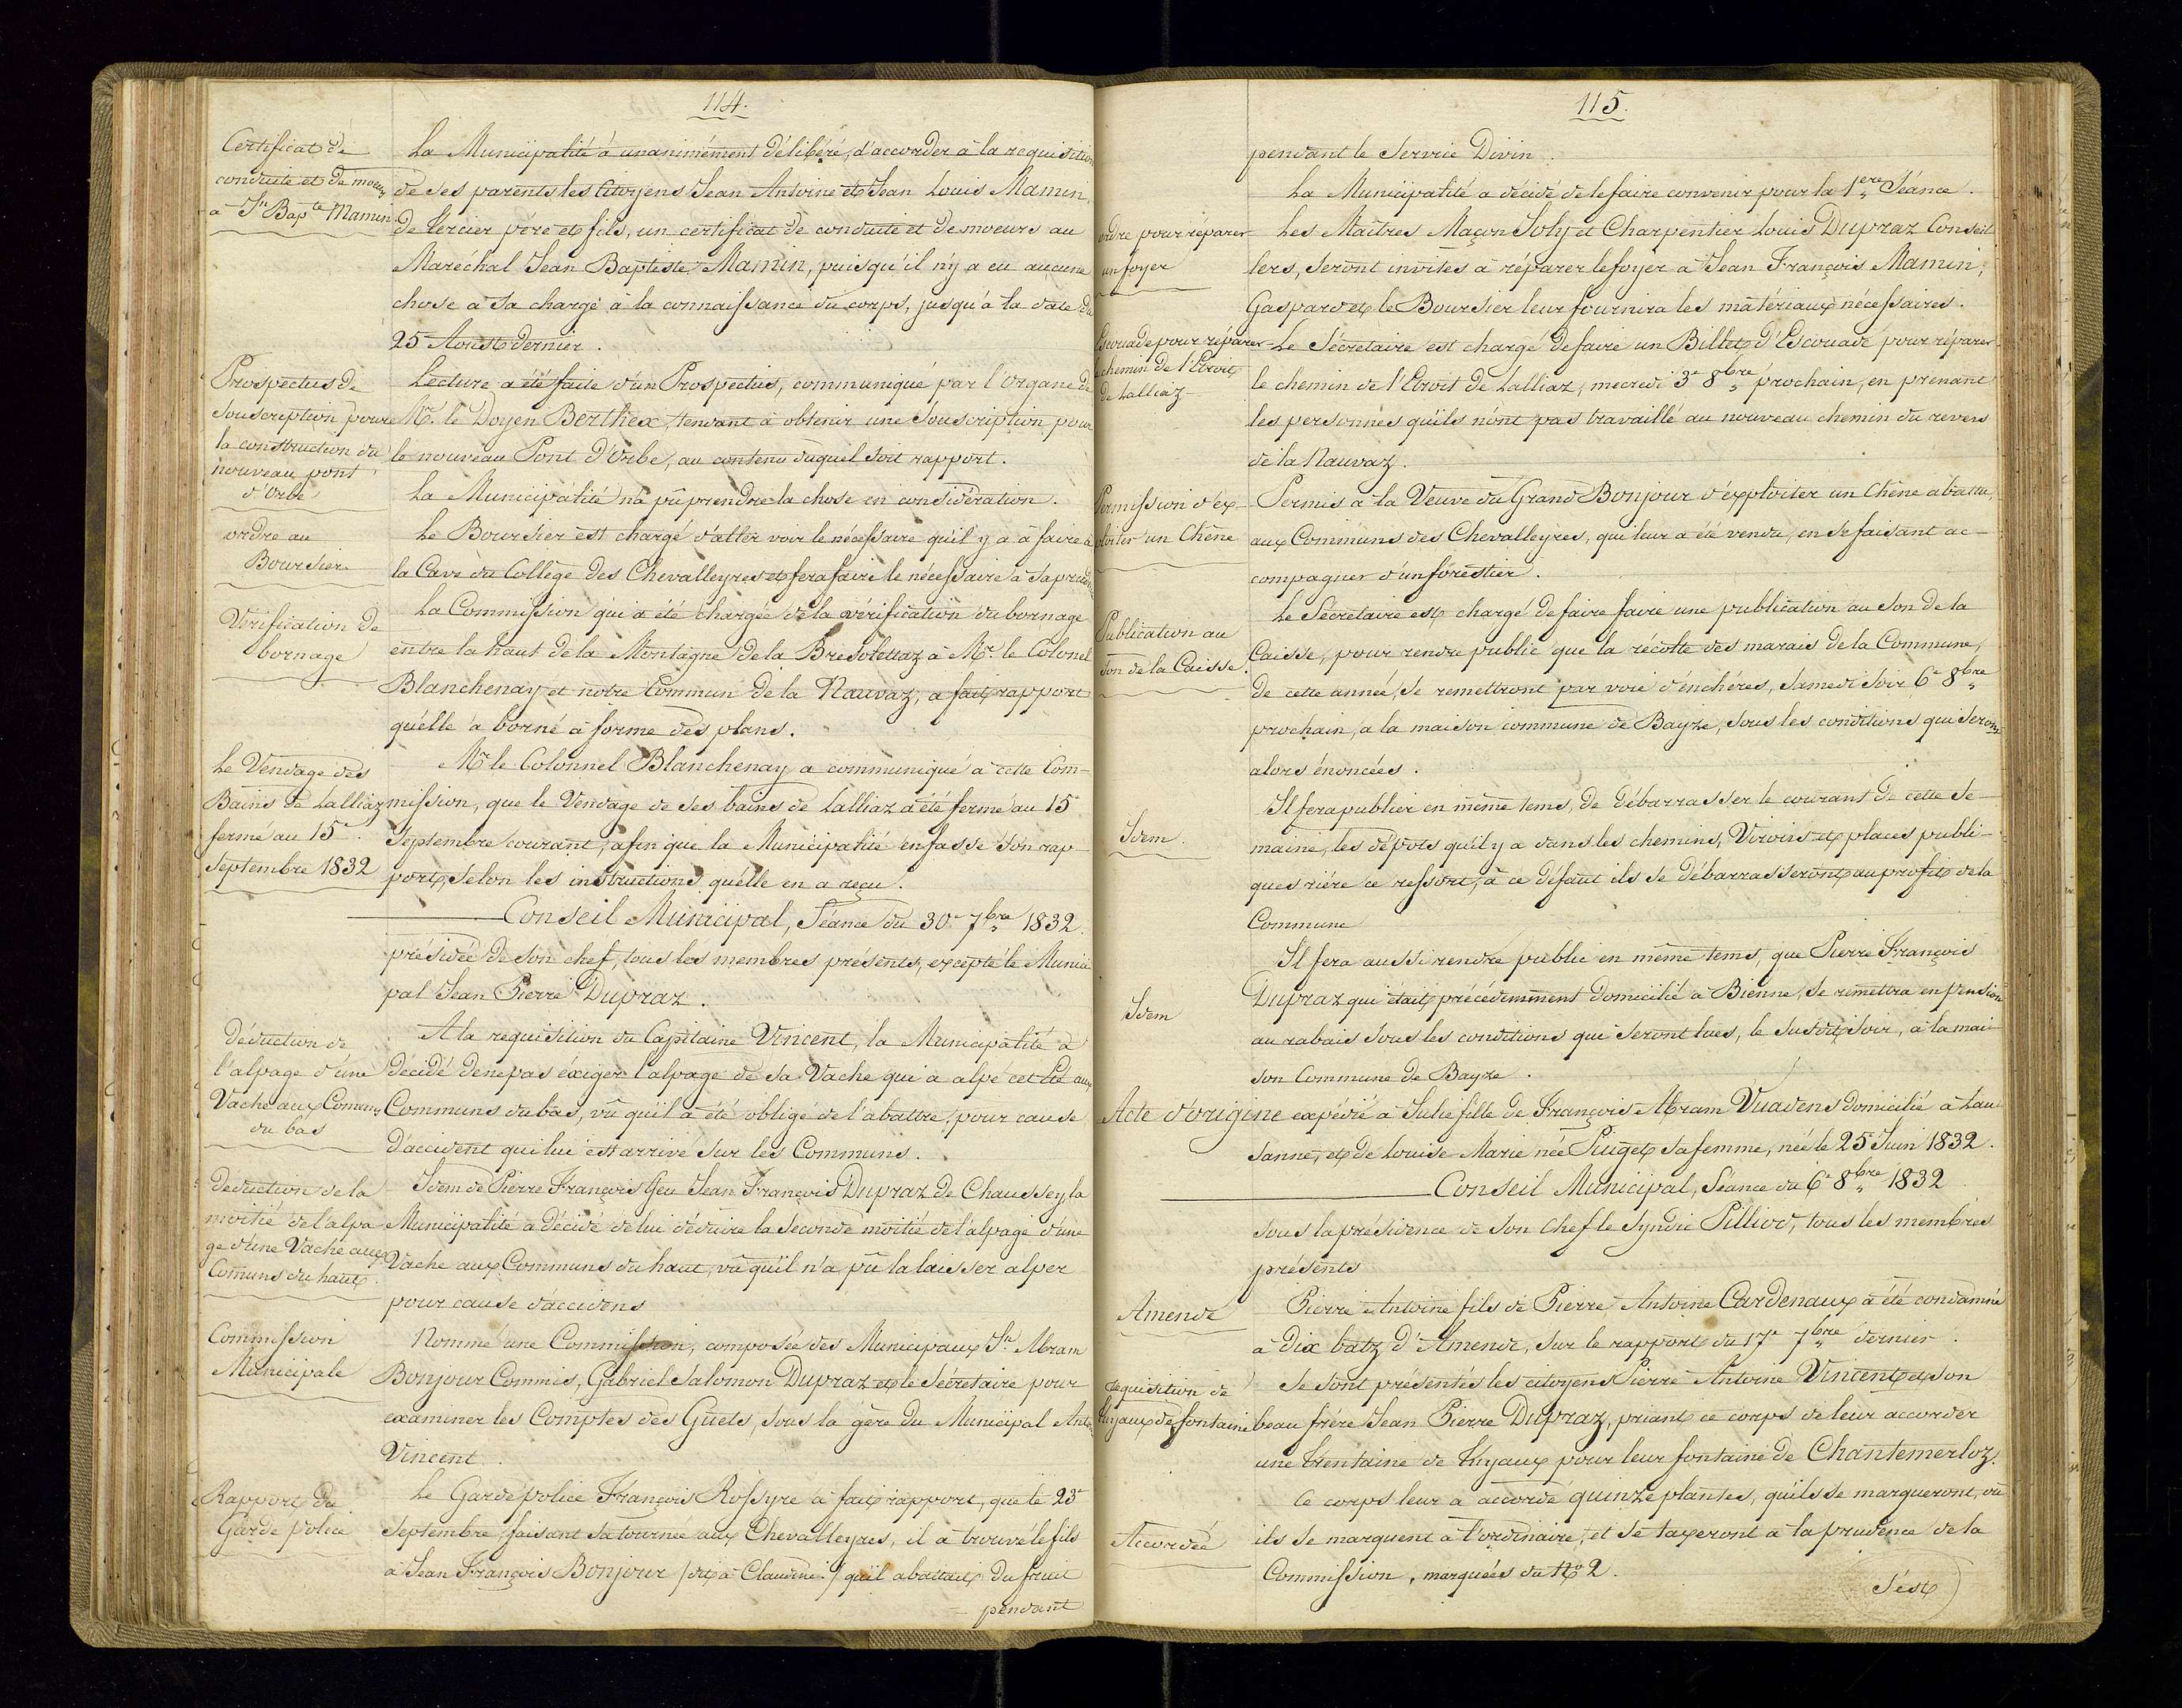 114.
Certificat de
conduite et de moeurs
a Jn Bapte Mamin.
La Municipalité à unanimément délibéré, d'accorder à la requisition
de ses parents les Citoyens Jean Antoine et Jean Louis Mamin,
de Tercier pére et fils, un certificat de conduite et de moeurs au
Maréchal Jean Baptiste Mamin, puisqu'il n'y a eu aucune
chose à sa charge à la connaissance du corps, jusqu'à la date du
25 Aoust dernier.
Prospectus de
souscription pour
la construction du
nouveau pont
d'Orbe
Lecture a été faite d'un Prospectus, communiqué par l'Organe de
Mr. le Doyen Berthex, tendant à obtenir une Souscription pour
le nouveau Pont d'Orbe, au contenu duquel soit rapport.
La Municipalité n'a pû prendre la chose en considération.
ordre au
Boursier
Le Boursier est chargé d'aller voir le nécessaire qu'il y a à faire à
la Cave du Collège des Chevalleyres et fera faire le nécessaire à sa prudence
Vérification de
bornage
La Commission qui a été chargée de la vérification du bornage
entre la haut de la Montagne de la Bresolettaz à Mr. le Colonel
Blanchenay et notre Commun de la Nauvaz, a fait rapport
qu'elle a borné à forme des plans.
Le Vendage des
Bains de Lalliaz
fermé au 15e.
Septembre 1832
Mr le Colonnel Blanchenay a communiqué à cette Com-
mission, que le Vendage de ses bains de Lalliaz a été fermé au 15e
Septembre courant, afin que la Municipalité en fasse son rap-
port, selon les instructions qu'elle en a reçu.
Conseil Municipal, Séance du 30e 7bre 1832.
présidée de son chef, tous les membres présents, excepté le Munici
pal Jean Pierre Dupraz.
Déduction de
l'alpage d'une
Vache aux Comuns
du bas
A la requisition du Capitaine Vincent, la Municipalité a
décidé de ne pas éxiger l'alpage de sa Vache qui a alpé cet Eté aux
Communs du bas, vû qu'il a été obligé de l'abattre, pour cause
d'accident qui lui est arrivé sur les Communs.
Déduction de la
moitié de l'alpa
ge d'une Vache aux
Comuns du haut.
Idem de Pierre François feu Jean François Dupraz de Chaussey la
Municipalité a décidé de lui déduire la seconde moitié de l'alpage d'une
Vache aux Communs du haut, vû qu'il n'a pû la laisser alper
pour cause d'accidens
Commission
Municipale
Nommé une Commission, composée des Municipaux Abram
Bonjour Commis, Gabriel Salomon Dupraz et le Sécretaire pour
examiner les Comptes des Guets, sous la gère du Municipal Ante
Vincent.
Rapport du
Garde police
Le Garde police François Rossyre a fait rapport, que le 23e
Septembre, faisant sa tournée aux Chevalleyres, il a trouvé le fils
à Jean François Bonjour / dit à Claudine / qu'il abattait du fruit
pendant
115.
pendant le Service Divin.
La Municipalité a décidé de le faire convenir pour la 1ere Séance.
ordre pour réparer
un foyer
Les Maîtres Maçon Joly et Charpentier Louis Dupraz Conseil
lers, seront invités à réparer le foyer à Jean François Mamin,
Gaspard et le Boursier leur fournira les matériaux nécessaires.
Escouade pour réparer
le chemin de l'Etroit
de Lalliaz
Le Sécretaire est chargé de faire un Billet d'Escouade pour réparer
le chemin de l'Etroit de Lalliaz, mecredi 3e 8bre prochain, en prenant
les personnes qu'ils n'ont pas travaillé au nouveau chemin du revers
de la Nauvaz.
Permission d'ex-
ploiter un Chêne
Permis à la Veuve du Grand Bonjour d'exploiter un Chêne abattu,
aux Communs des Chevalleyres, qui leur a été vendu, en se faisant ac-
compagner d'un forestier.
Publication au
son de la Caisse.
Le Sécretaire est chargé de faire faire une publication au son de la
Caisse, pour rendre public que la récolte des marais de la Commune,
de cette année, se remettront par voie d'énchéres, samedi soir 6e 8bre
prochain, a la maison commune de Bayze, sous les conditions qui seront
alors énoncées.
Idem.
Il fera publier en même tems, de débarrasser le courant de cette se-
maine, les dépots qu'il y a dans les chemins, Viroirs et places publi-
ques riére ce ressort, à ce défaut ils se débarrasseront au profit de la
Commune
Idem
Il fera aussi rendre public en même tems, que Pierre François
Dupraz qui était précédemment domicilié à Bienne, se remettra en pension
au rabais sous les conditions qui seront lues, le susdit soir, à la mai
son Commune de Bayze.
Acte d'origine expédié à Julie fille de François Abram Vuadens domicilié à Lau
sanne, et de Louise Marie née Puget sa femme, née le 25e Juin 1832.
Conseil Municipal, Séance du 6e 8bre 1832
sous la présidence de son Chef le Syndic Pilliod, tous les membres
présents
Amende
Pierre Antoine fils de Pierre Antoine Cardenaux a été condamné
à Dix batz d'Amende, sur le rapport du 17e 7bre dernier.
requisition de
tuyaux de fontaine
Se sont présentés les citoyens Pierre Antoine Vincent et son
beau frére Jean Pierre Dupraz, priant ce corps de leur accorder
une trentaine de tuyaux pour leur fontaine de Chantemerloz.
Accordée
Ce corps leur a accordé quinze plantes, qu'ils se marqueront, où
ils se marquent à l'ordinaire, et se taxeront à la prudence de la
Commission, marquées du No 2.
S'est